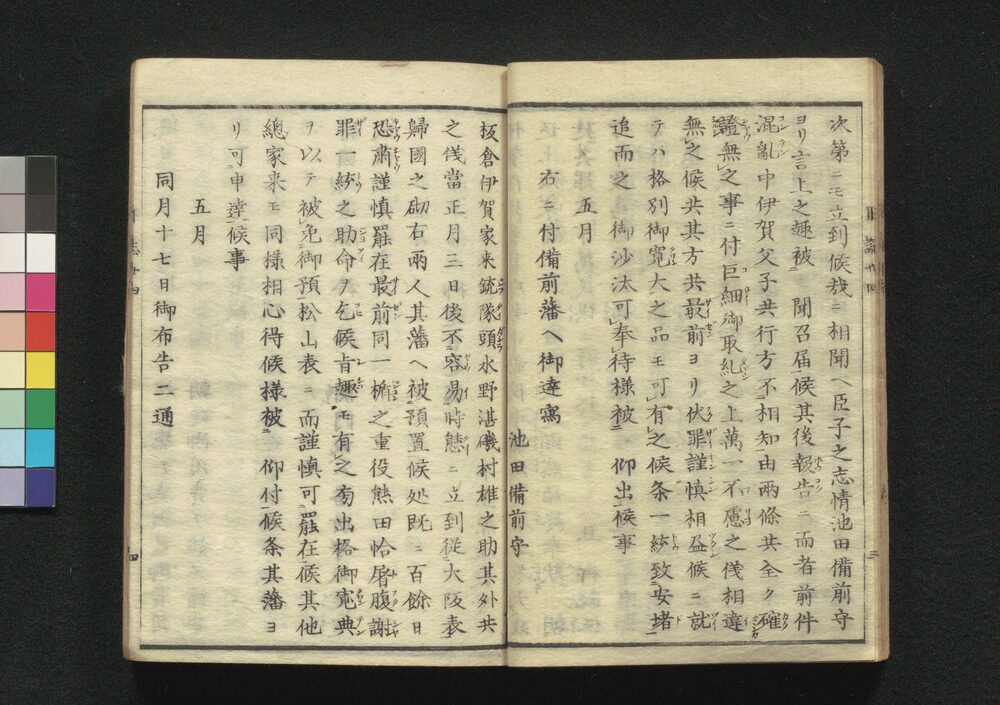 次第ニモ立到候哉ニ相聞ヘ臣子之志情池田備前守
ヨリ言上之趣被　聞召届候其後報告ニ而者前件
混乱中伊賀父子共行方不相知由両條共全ク確
證無之事ニ付巨細御取糺之上萬一不慮之儀相違
無之候共其方共最前ヨリ伏罪謹慎相盡候ニ就
テハ格別御寛大之品モ可有之候条一統致安堵
追而之　御沙汰可奉待様被　仰出候事
五月
右ニ付備前藩ヘ御達寫
池田備前守
板倉伊賀家来銃隊頭水野湛磯村雄之助其外共
之儀當正月三日後不容易時態ニ立到従大阪表
歸國之砌右兩人其藩ヘ被預置候処既ニ百餘日
恐肅謹慎罷在最前同一楯之重役熊田恰屠腹謝
罪一統之助命ヲ乞候旨趣モ有之旁出格御寛典
ヲ以テ被免御預松山表ニ而謹慎可罷在候其他
總家来モ同様相心得候様被　仰付候条其藩ヨ
リ可申達候事
五月
同月十七日御布告二通
三
四